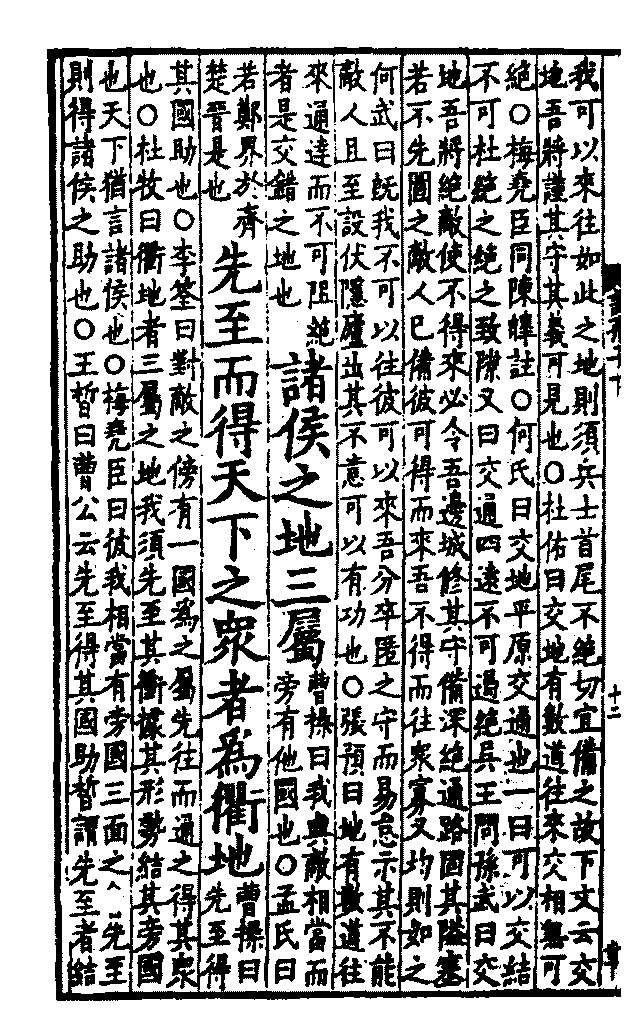 我可以來往如此之地則須兵士首尾不絕切宜備之故下文云交
地吾將謹其守其義可見也○杜佑曰交地有數道往來交相無可
絕○梅堯臣同陳皥註○何氏曰交地平原交通也一曰可以交結
不可杜絕之絕之致隙又曰交通四遠不可遏絕吳王問孫武曰交
地吾將絕敵使不得來必令吾邊城修其守備深絕通路固其隘塞
若不先圖之敵人已備彼可得而來吾不得而往衆寡又均則如之
何武曰旣我不可以往彼可以來吾分卒匿之守而易怠示其不能
敵人且至設伏隱廬出其不意可以有功也○張預曰地有數道往
來通達而不可阻絕
者是交錯之地也
諸侯之地三屬
曹操曰我與敵相當而
旁有他國也○孟氏曰
若鄭界於齊
楚晉是也
先至而得天下之衆者爲衢地
曹操曰
先至得
其國助也○李筌曰對敵之傍有一國爲之屬先往而通之得其衆
也○杜牧曰衢地者三屬之地我須先至其衝據其形勢結其旁國
也天下猶言諸侯也○梅堯臣曰彼我相當有旁國三面之 先至
則得諸侯之助也○王晳曰曹公云先至得其國助晳謂先至者結
十二
章